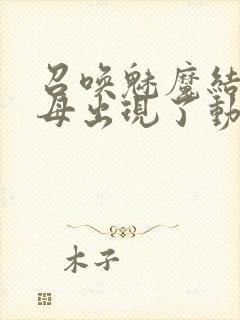 召唤魅魔结
母出现了动
木子